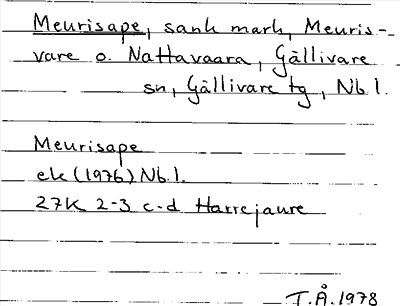 Meurisape, sank mark, Meuris-
vare o. Nattavaara, Gällivare
sn, Gällivare tg, Nb l.
Meurisape
ek (1976) Nb l.
27K 2-3 c-d Harrejaure
T.Å. 1978